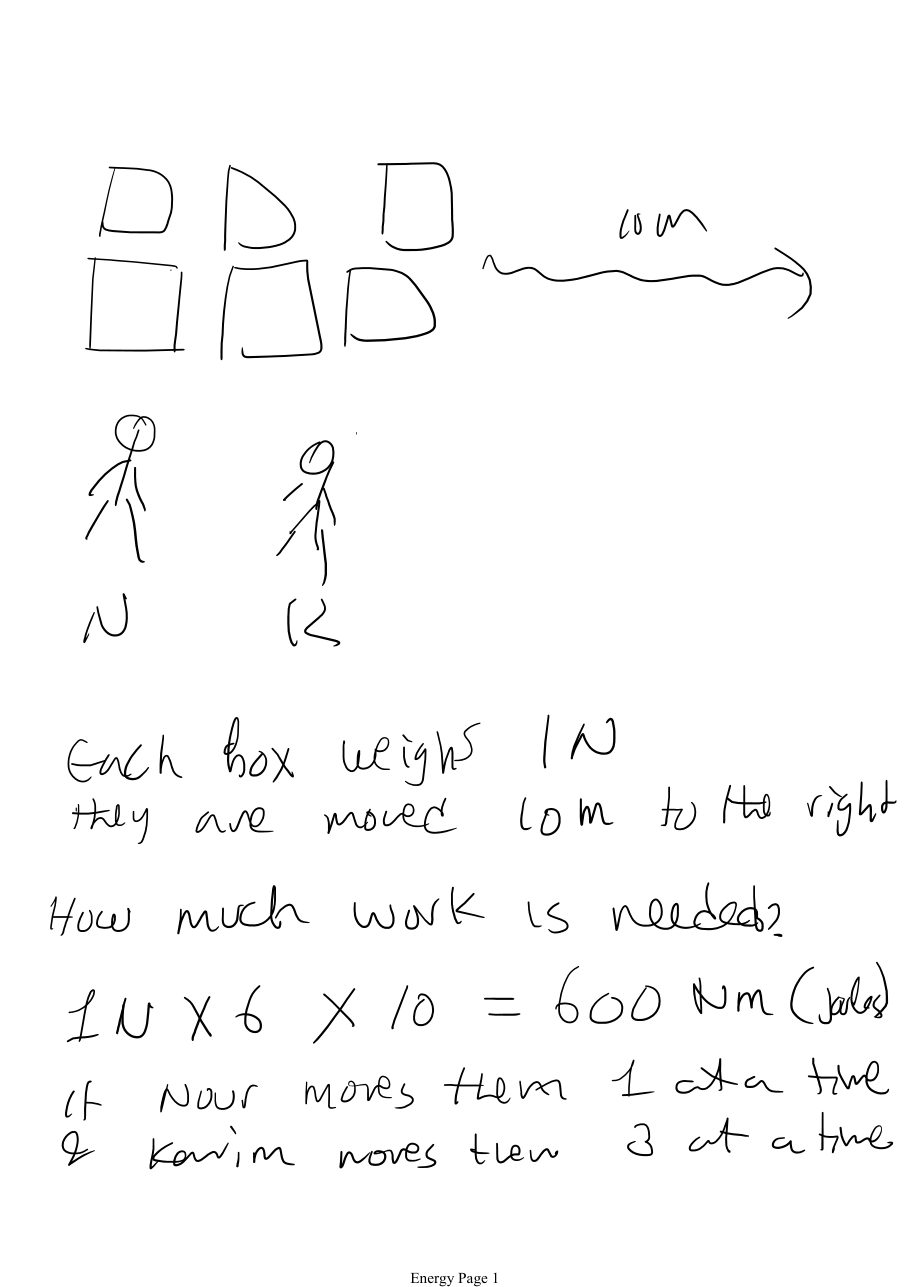 10 m
N K
Each box weighs 1N
they are moved 10m to the right
How much work is needed?
1N X 6 X 10 = 600 Nm (joules)
if Nour moves them 1 at a time
& Karim moves them 3 at a time
Energy Page 1